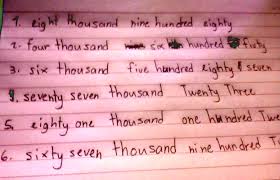 1. eight thousand nine hundred eighty
2. four thousand six hundred fiuty
3. six thousand five hundred eighty seven
4. seventy seven thousand Twenty Three
5. eighty one thousand one hundred Tw
6. sixty seven thousand nine hundred T